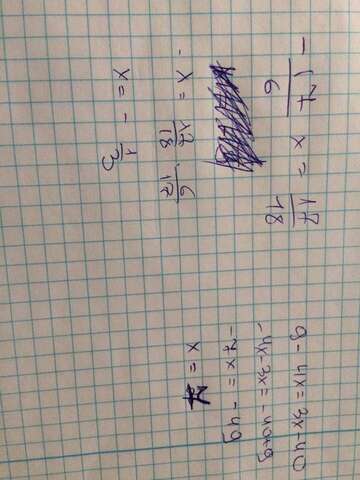 - 17/6 x = 17/18
- x = 17/18 6/17
x = - 1/3
9 - 4x = 3x - 40
- 4x - 3x = - 40 - 9
- 7x = - 49
x = 7